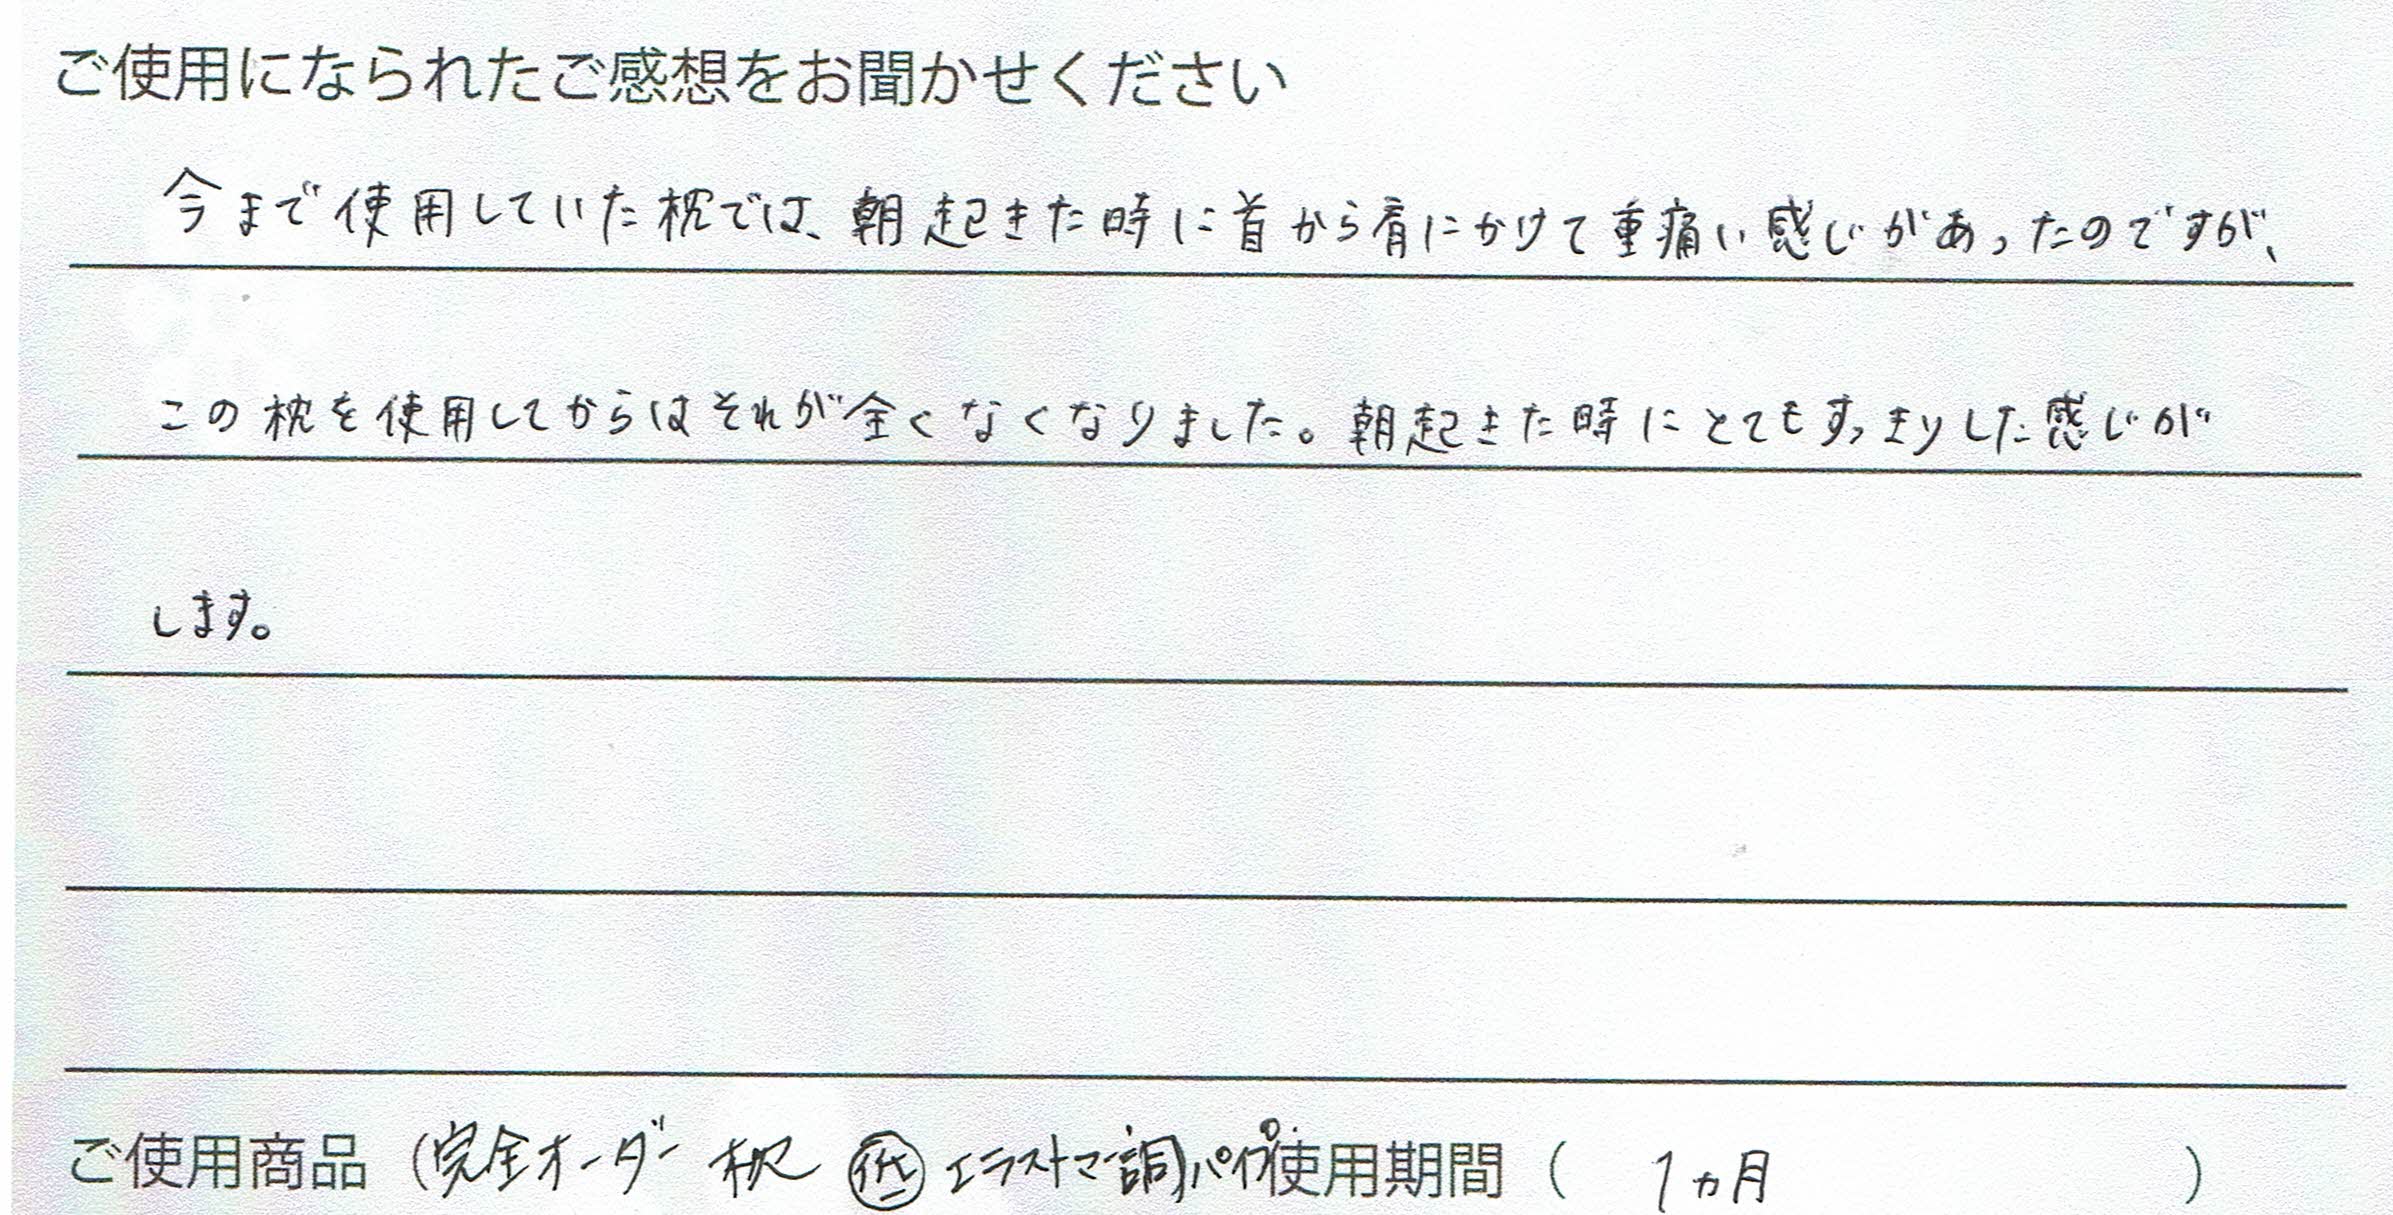 ご使用になられたご感想をお聞かせください
今まで使用していた枕では、朝起きた時に首から肩にかけて重痛い感じがあったのですが、
この枕を使用してからはそれが全くなくなりました。朝起きた時にとてもすっきりした感じが
します。
ご使用商品（完全オーダー枕 低 エラストマー調）パイプ使用期間（ 1ヵ月 ）